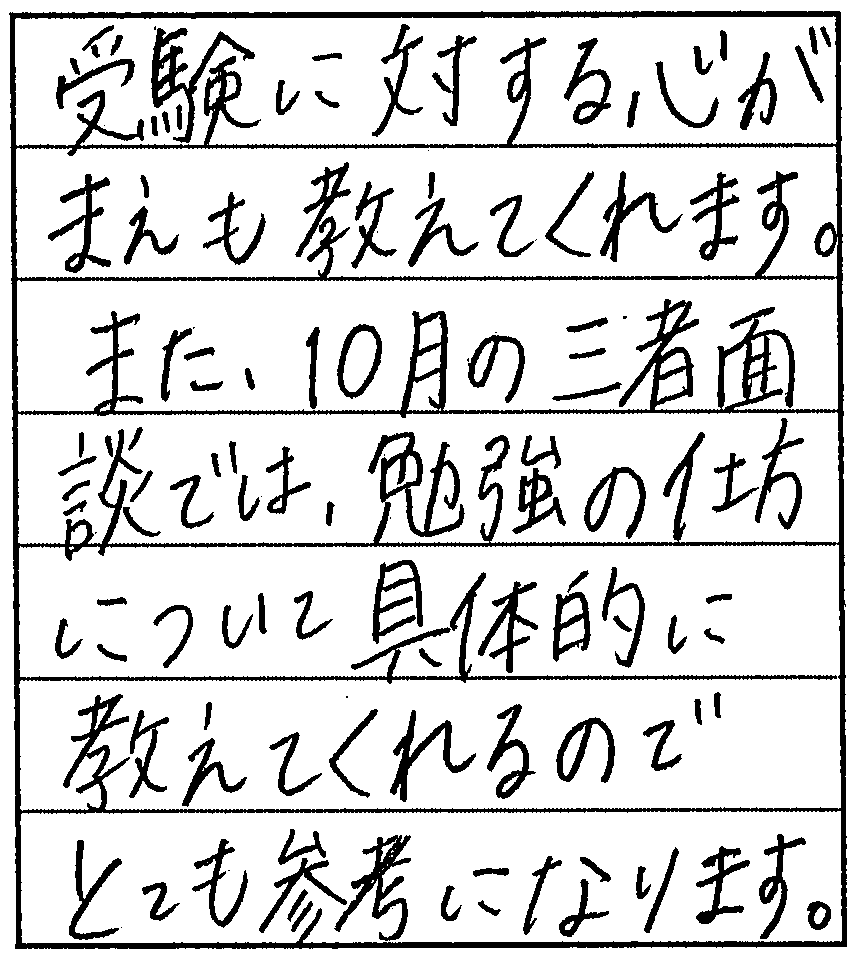 受験に対する心が
まえも教えてくれます。
また、10月の三者面
談では、勉強の仕方
について具体的に
教えてくれるので
とても参考になります。